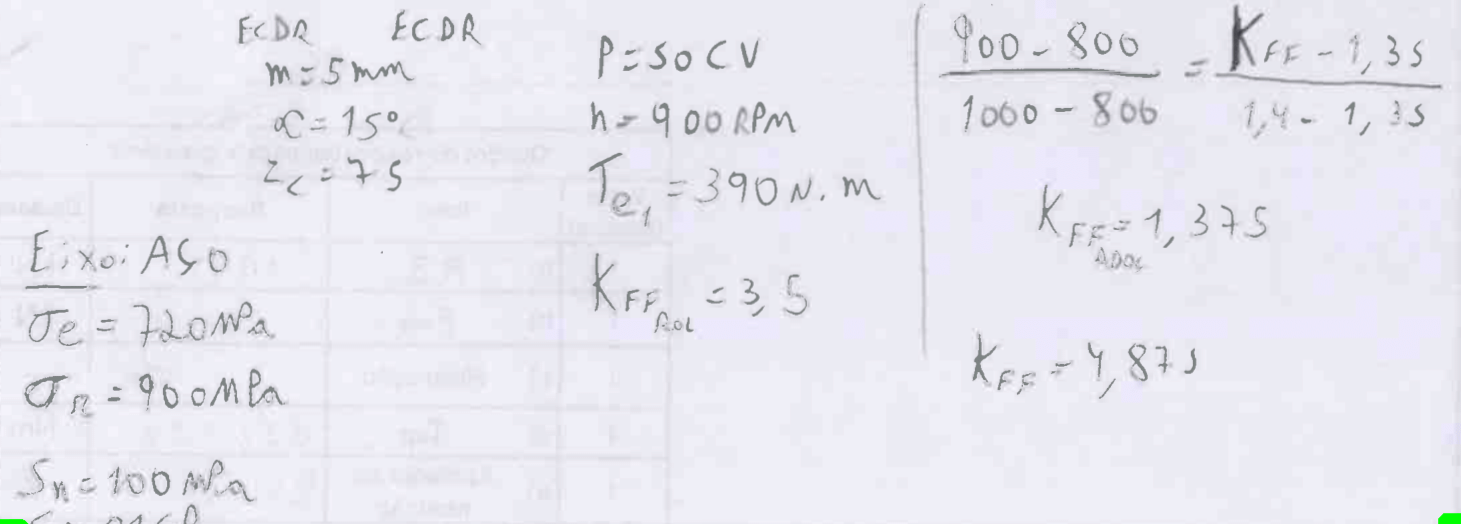 ECDR ECDR
m = 5 mm
α = 15°
Zc = 75
Eixo: AÇO
σe = 720 MPa
σR = 900 MPa
Sn = 100 MPa
P = 50 CV
n = 900 RPM
Te1 = 390 N.m
KFF ROL = 3,5
900 - 800 / 1000 - 800 = KFF - 1,35 / 1,4 - 1,35
KFF ADOÇ = 1,375
KFF = 4,875